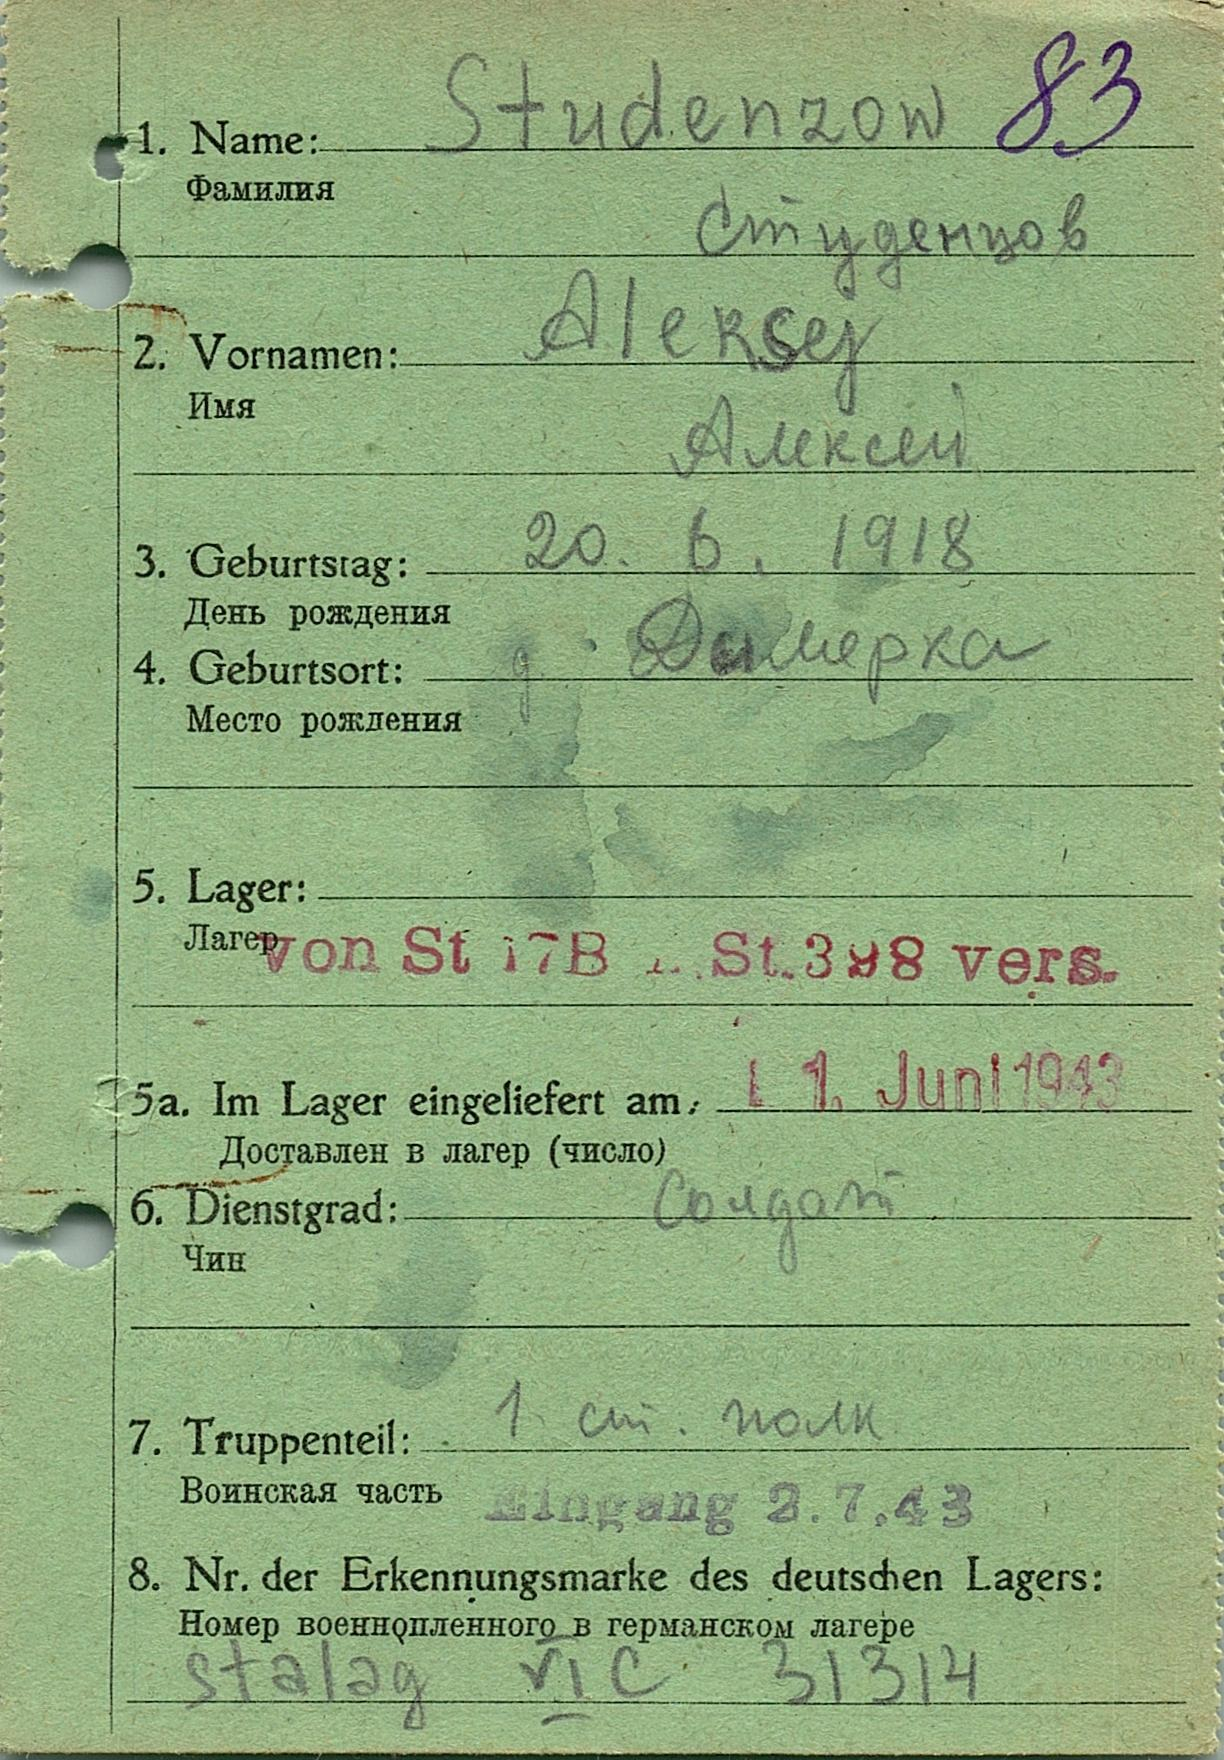 Studenzow 83
1. Name:
Фамилия
Студенцов
Aleksej
2. Vornamen:
Имя
Алексей
3. Geburtstag: 20. 6. 1918
День рождения
4. Geburtsort: д. Димерка
Место рождения
5. Lager:
Лагер
von St 17B St. 398 vers.
5a. Im Lager eingeliefert am: 1. Juni 1943
Доставлен в лагер (число)
6. Dienstgrad: Солдат
Чин
7. Truppenteil: 1 ст. полк
Воинская часть Eingang 2.7.43
8. Nr. der Erkennungsmarke des deutschen Lagers:
Номер военнопленного в германском лагере
stalag VI C 31314